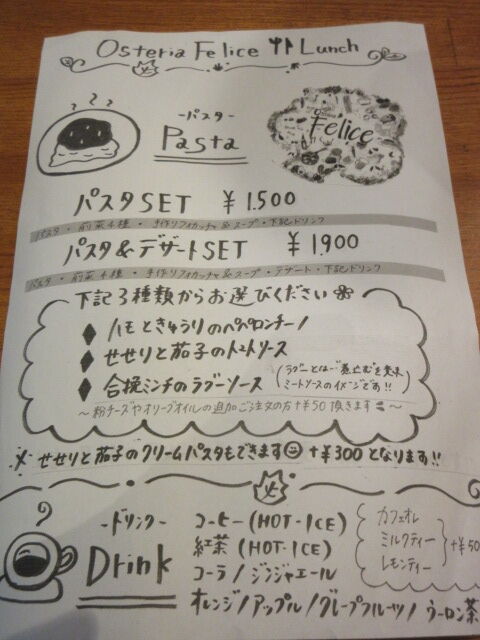 Osteria Felice Lunch
-パスタ-
Pasta
Felice
パスタSET ¥1.500
パスタ・前菜4種・手作りフォカッチャ&スープ・下記ドリンク
パスタ&デザートSET ¥1.900
パスタ・前菜4種・手作りフォカッチャ&スープ・デザート・下記ドリンク
下記3種類からお選びください
◆ ハモときゅうりのペペロンチーノ
◆ せせりと茄子のトマトソース
◆ 合挽ミンチのラグーソース (ラグーとは"煮込む"を意味
ミートソースのイメージです!!)
〜粉チーズやオリーブオイルの追加ご注文の方+¥50頂きます〜
※ せせりと茄子のクリームパスタもできます +¥300となります!!
-ドリンク-
Drink
コーヒー(HOT・ICE)
紅茶(HOT・ICE)
コーラ/ジンジャエール
オレンジ/アップル/グレープフルーツ/ウーロン茶
カフェオレ
ミルクティー +¥50
レモンティー